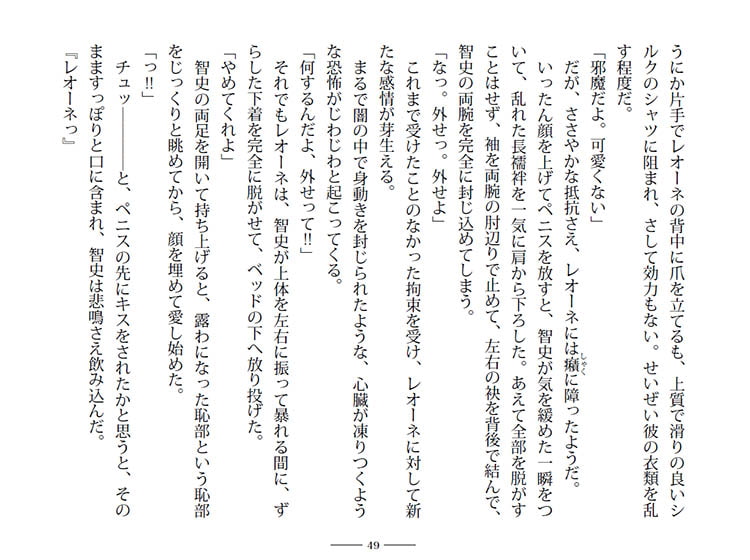 うにか片手でレオーネの背中に爪を立てるも、上質で滑りの良いシ
ルクのシャツに阻まれ、さして効力もない。せいぜい彼の衣類を乱
す程度だ。
「邪魔だよ。可愛くない」
だが、ささやかな抵抗さえ、レオーネには癪に障ったようだ。
いったん顔を上げてペニスを放すと、智史が気を緩めた一瞬をつ
いて、乱れた長襦袢を一気に肩から下ろした。あえて全部を脱がす
ことはせず、袖を両腕の肘辺りで止めて、左右の袂を背後で結んで、
智史の両腕を完全に封じ込めてしまう。
「なっ。外せっ。外せよ」
これまで受けたことのなかった拘束を受け、レオーネに対して新
たな感情が芽生える。
まるで闇の中で身動きを封じられたような、心臓が凍りつくよう
な恐怖がじわじわと起こってくる。
「何するんだよ、外せって!!」
それでもレオーネは、智史が上体を左右に振って暴れる間に、ず
らした下着を完全に脱がせて、ベッドの下へ放り投げた。
「やめてくれよ」
智史の両足を開いて持ち上げると、露わになった恥部という恥部
をじっくりと眺めてから、顔を埋めて愛し始めた。
「っ!!」
チュッ――――と、ペニスの先にキスをされたかと思うと、その
まますっぽりと口に含まれ、智史は悲鳴さえ飲み込んだ。
『レオーネっ』
しゃく
49